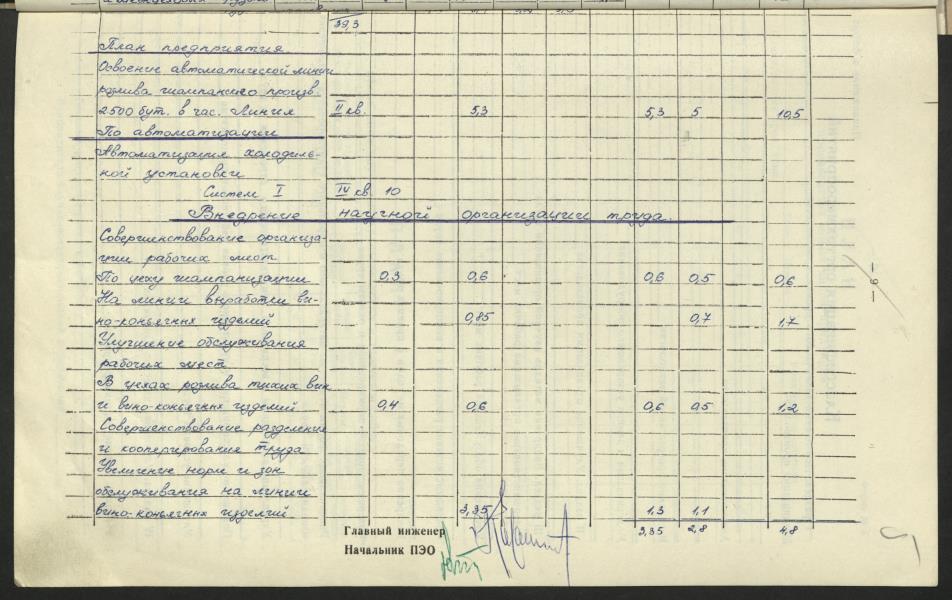 39,3
План предприятия
Освоение автоматической линии
розлива шампанского произв.
2500 бут. в час. Линия II кв. 5,3 5,3 5 10,5
По автоматизации
Автоматизация холодиль-
ной установки
Систем I IV кв. 10
Внедрение научной организации труда.
Совершенствование организа-
ции рабочих мест
По цеху шампанизации 0,3 0,6 0,6 0,5 0,6
На линии выработки ви-
но-коньячных изделий 0,85 0,7 1,7
Улучшение обслуживания
рабочих мест
В цехах розлива тихих вин
и вино-коньячных изделий 0,4 0,6 0,6 0,5 1,2
Совершенствование разделения
и кооперирование труда
Увеличение норм и зон
обслуживания на линии
вино-коньячных изделий 1,3 1,1
Главный инженер 3,35 2,8 4,8
Начальник ПЭО
— 9 —